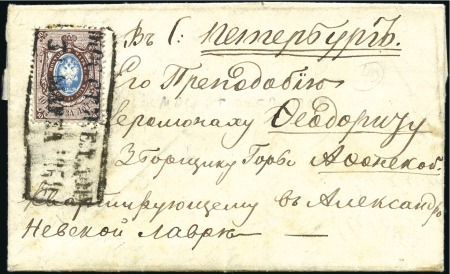 Въ С: Петербургъ.
Его Преподобію
Іеромонаху Ѳеодориту
Зборщику Горы Аѳонской.
Квартирующему въ Александро
Невской Лаврѣ